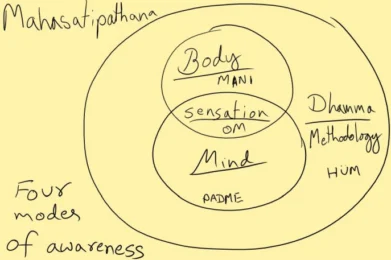 Mahasatipathana
Body
MANI
sensation
OM
Mind
PADME
Dhamma
Methodology
HUM
Four
modes
of awareness